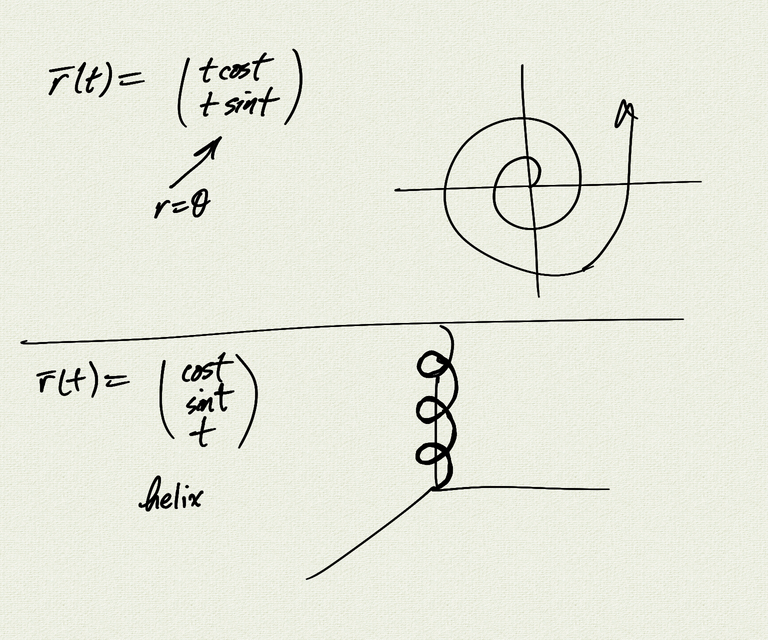 r̅(t) = (t cost
t sint)
r=θ
r̅(t) = (cost
sint
t)
helix